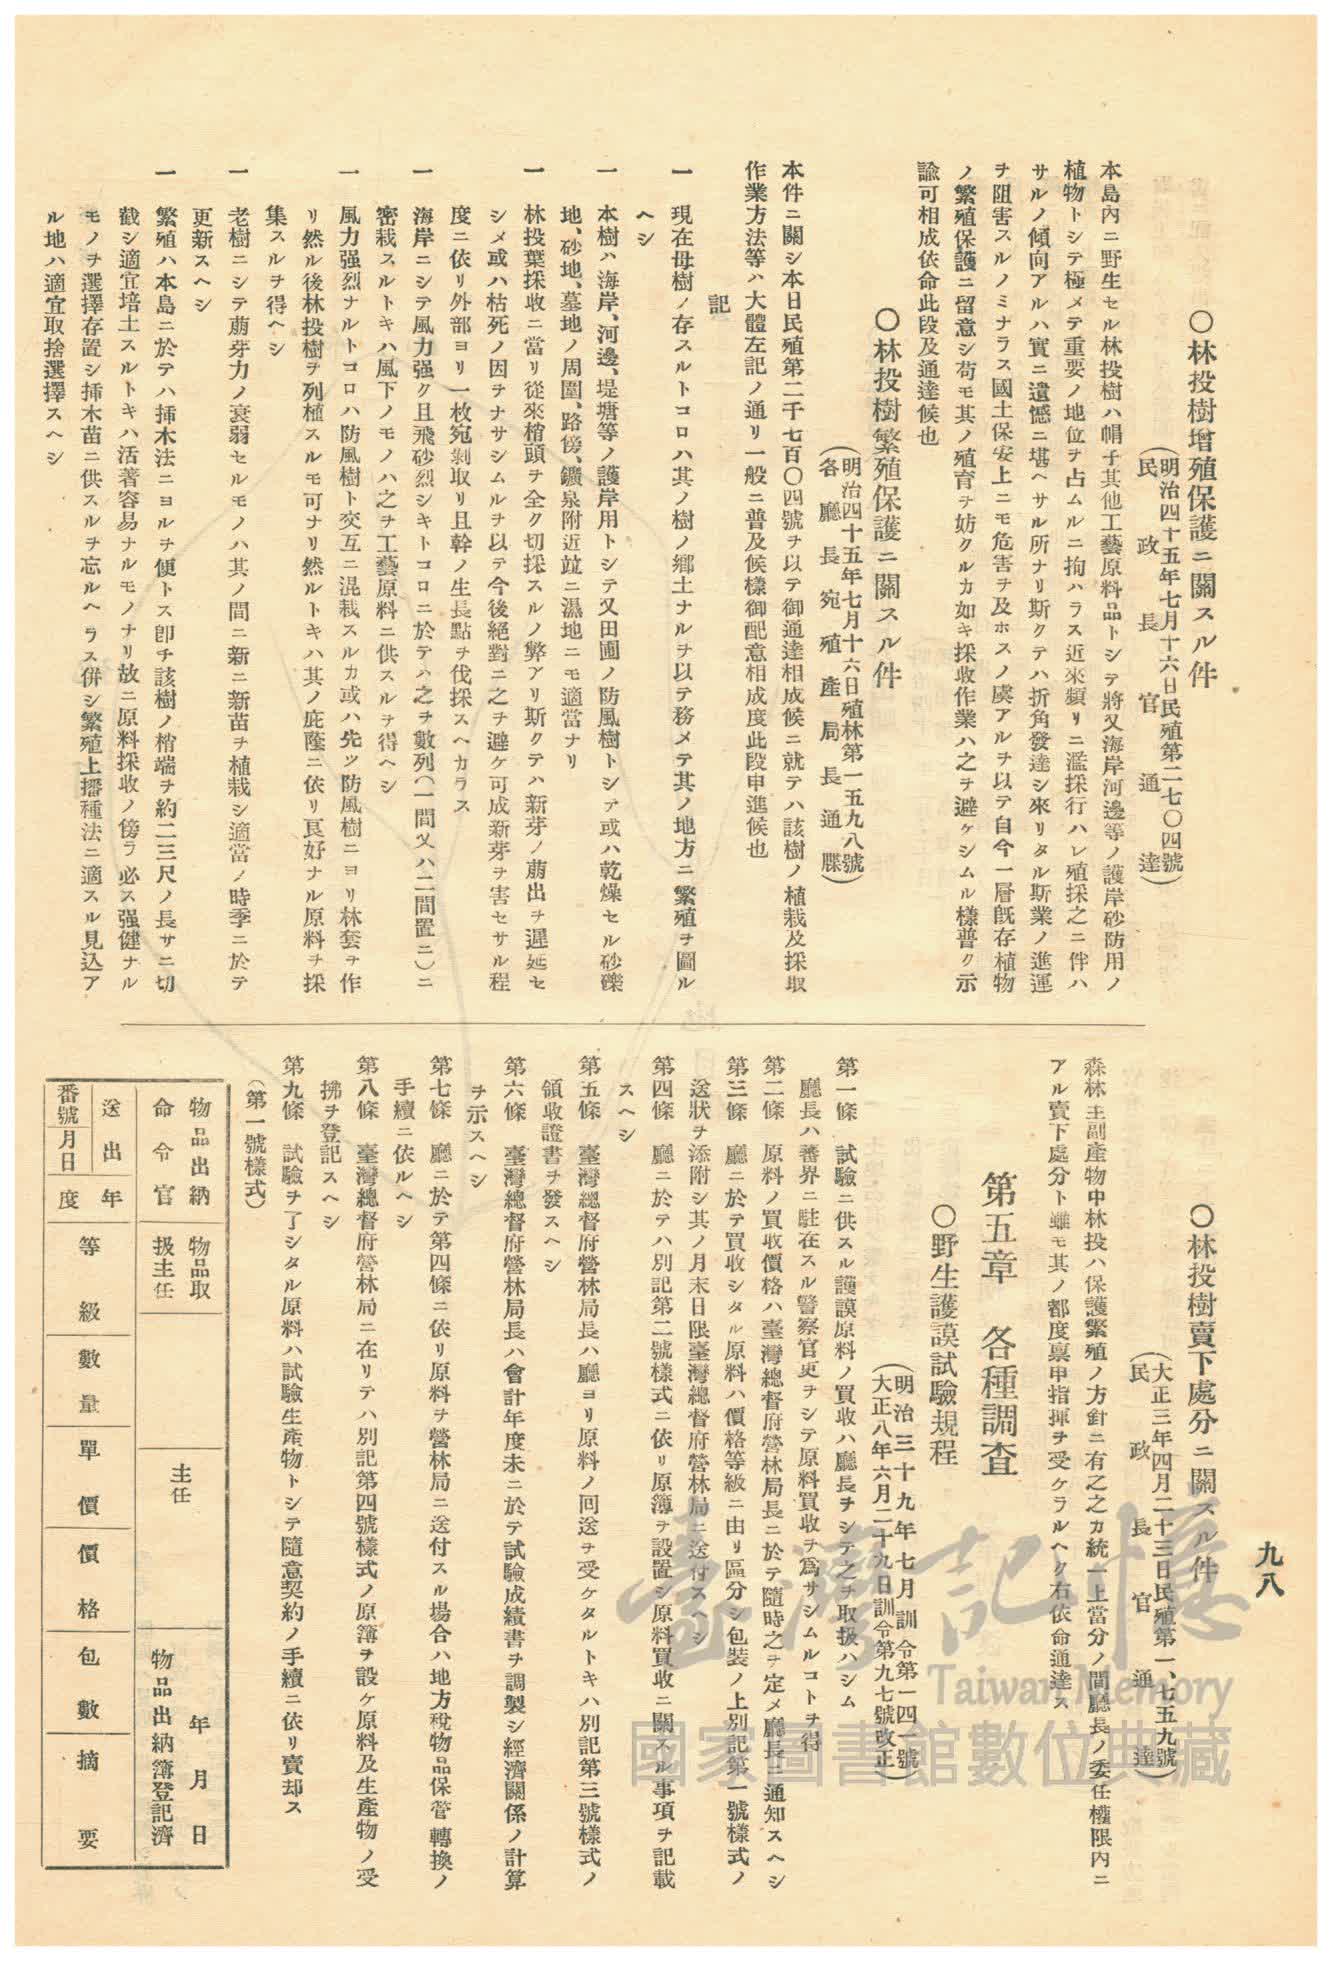 九八
〇林投樹增殖保護ニ關スル件
（明治四十五年七月十六日民殖第二七〇四號
民政長官通達）
本島內ニ野生セル林投樹ハ帽子其他工藝原料品トシテ將又海岸河邊等ノ護岸砂防用ノ
植物トシテ極メテ重要ノ地位ヲ占ムルニ拘ハラス近來頻リニ濫採行ハレ殖採之ニ伴ハ
サルノ傾向アルハ實ニ遺憾ニ堪ヘサル所ナリ斯クテハ折角發達シ來リタル斯業ノ進運
ヲ阻害スルノミナラス國土保安上ニモ危害ヲ及ホスノ虞アルヲ以テ自今一層旣存植物
ノ繁殖保護ニ留意シ苟モ其ノ殖育ヲ妨クルカ如キ採收作業ハ之ヲ避ケシムル樣普ク示
諭可相成依命此段及通達候也
〇林投樹繁殖保護ニ關スル件
（明治四十五年七月十六日殖林第一五九八號
各廳長宛殖產局長通牒）
本件ニ關シ本日民殖第二千七百〇四號ヲ以テ御通達相成候ニ就テハ該樹ノ植栽及採取
作業方法等ハ大體左記ノ通リ一般ニ普及候樣御配意相成度此段申進候也
記
一 現在母樹ノ存スルトコロハ其ノ樹ノ鄕土ナルヲ以テ務メテ其ノ地方ニ繁殖ヲ圖ル
ヘシ
一 本樹ハ海岸、河邊、堤塘等ノ護岸用トシテ又田圃ノ防風樹トシテ或ハ乾燥セル砂礫
地、砂地、墓地ノ周圍、路傍、鑛泉附近竝ニ濕地ニモ適當ナリ
一 林投葉採收ニ當リ從來梢頭ヲ全ク切採スルノ弊アリ斯クテハ新芽ノ萠出ヲ遲延セ
シメ或ハ枯死ノ因ヲナサシムルヲ以テ今後絕對ニ之ヲ避ケ可成新芽ヲ害セサル程
度ニ依リ外部ヨリ一枚宛剝取リ且幹ノ生長點ヲ伐採スヘカラス
一 海岸ニシテ風力强ク且飛砂烈シキトコロニ於テハ之ヲ數列（一間又ハ二間置ニ）ニ
密栽スルトキハ風下ノモノハ之ヲ工藝原料ニ供スルヲ得ヘシ
一 風力强烈ナルトコロハ防風樹ト交互ニ混栽スルカ或ハ先ツ防風樹ニヨリ林套ヲ作
リ然ル後林投樹ヲ列植スルモ可ナリ然ルトキハ其ノ庇蔭ニ依リ良好ナル原料ヲ採
集スルヲ得ヘシ
一 老樹ニシテ萠芽力ノ衰弱セルモノハ其ノ間ニ新ニ新苗ヲ植栽シ適當ノ時季ニ於テ
更新スヘシ
一 繁殖ハ本島ニ於テハ挿木法ニヨルヲ便トス卽チ該樹ノ梢端ヲ約二三尺ノ長サニ切
截シ適宜培土スルトキハ活著容易ナルモノナリ故ニ原料採收ノ傍ラ必ス强健ナル
モノヲ選擇存置シ挿木苗ニ供スルヲ忘ルヘラス併シ繁殖上播種法ニ適スル見込ア
ル地ハ適宜取捨選擇スヘシ
〇林投樹賣下處分ニ關スル件
（大正三年四月二十三日民殖第一、七五九號
民政長官通達）
森林主副產物中林投ハ保護繁殖ノ方針ニ有之之カ統一上當分ノ間廳長ノ委任權限內ニ
アル賣下處分ト雖モ其ノ都度稟申指揮ヲ受ケラルヘク右依命通達ス
第五章 各種調査
〇野生護謨試驗規程
（明治三十九年七月訓令第一四一號
大正八年六月二十九日訓令第九七號改正）
第一條 試驗ニ供スル護謨原料ノ買收ハ廳長ヲシテ之ヲ取扱ハシム
廳長ハ蕃界ニ駐在スル警察官吏ヲシテ原料買收ヲ爲サシムルコトヲ得
第二條 原料ノ買收價格ハ臺灣總督府營林局長ニ於テ隨時之ヲ定メ廳長ニ通知スヘシ
第三條 廳ニ於テ買收シタル原料ハ價格等級ニ由リ區分シ包裝ノ上別記第一號樣式ノ
送狀ヲ添附シ其ノ月末日限臺灣總督府營林局ニ送付スヘシ
第四條 廳ニ於テハ別記第二號樣式ニ依リ原簿ヲ設置シ原料買收ニ關スル事項ヲ記載
スヘシ
第五條 臺灣總督府營林局長ハ廳ヨリ原料ノ回送ヲ受ケタルトキハ別記第三號樣式ノ
領收證書ヲ發スヘシ
第六條 臺灣總督府營林局長ハ會計年度末ニ於テ試驗成績書ヲ調製シ經濟關係ノ計算
ヲ示スヘシ
第七條 廳ニ於テ第四條ニ依リ原料ヲ營林局ニ送付スル場合ハ地方稅物品保管轉換ノ
手續ニ依ルヘシ
第八條 臺灣總督府營林局ニ在リテハ別記第四號樣式ノ原簿ヲ設ケ原料及生產物ノ受
拂ヲ登記スヘシ
第九條 試驗ヲ了シタル原料ハ試驗生產物トシテ隨意契約ノ手續ニ依リ賣却ス
（第一號樣式）
物品出納命令官
物品取扱主任
主任
年月日
物品出納簿登記濟
送出
番號
月日
年度
等級
數量
單價
價格
包數
摘要
臺灣記憶
Taiwan Memory
國家圖書館數位典藏